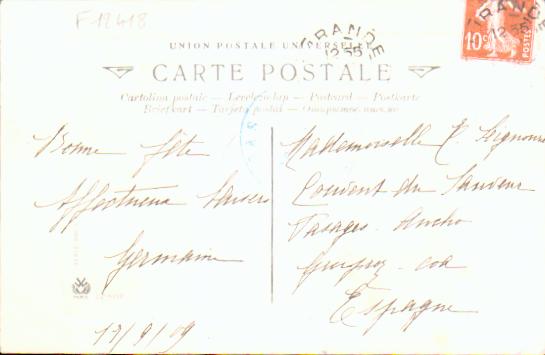 F 12418
UNION POSTALE UNIVERSELLE
CARTE POSTALE
Cartolina postale — Levelezo-lap — Postcard — Postkarte
Briefkart — Tarjeta postal —
10c
POSTES
Bonne fête
Affectueux baisers
Germaine
17/9/09
Mademoiselle
Couvent du Sauveur
Pasages Ancho
Guipuz-coa
Espagne
PARIS